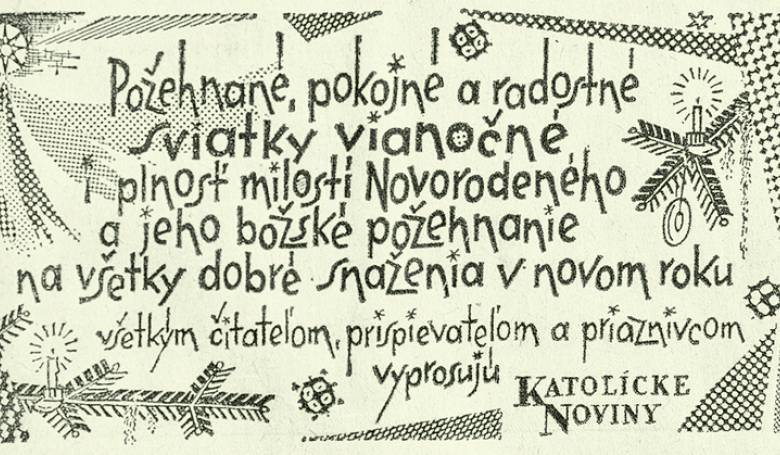 Požehnané, pokojné a radostné
sviatky vianočné
i plnosť milosti Novorodeného
a jeho božské požehnanie
na všetky dobré snaženia v novom roku
všetkým čitateľom, prispievateľom a priaznivcom
vyprosujú
KATOLÍCKE
NOVINY